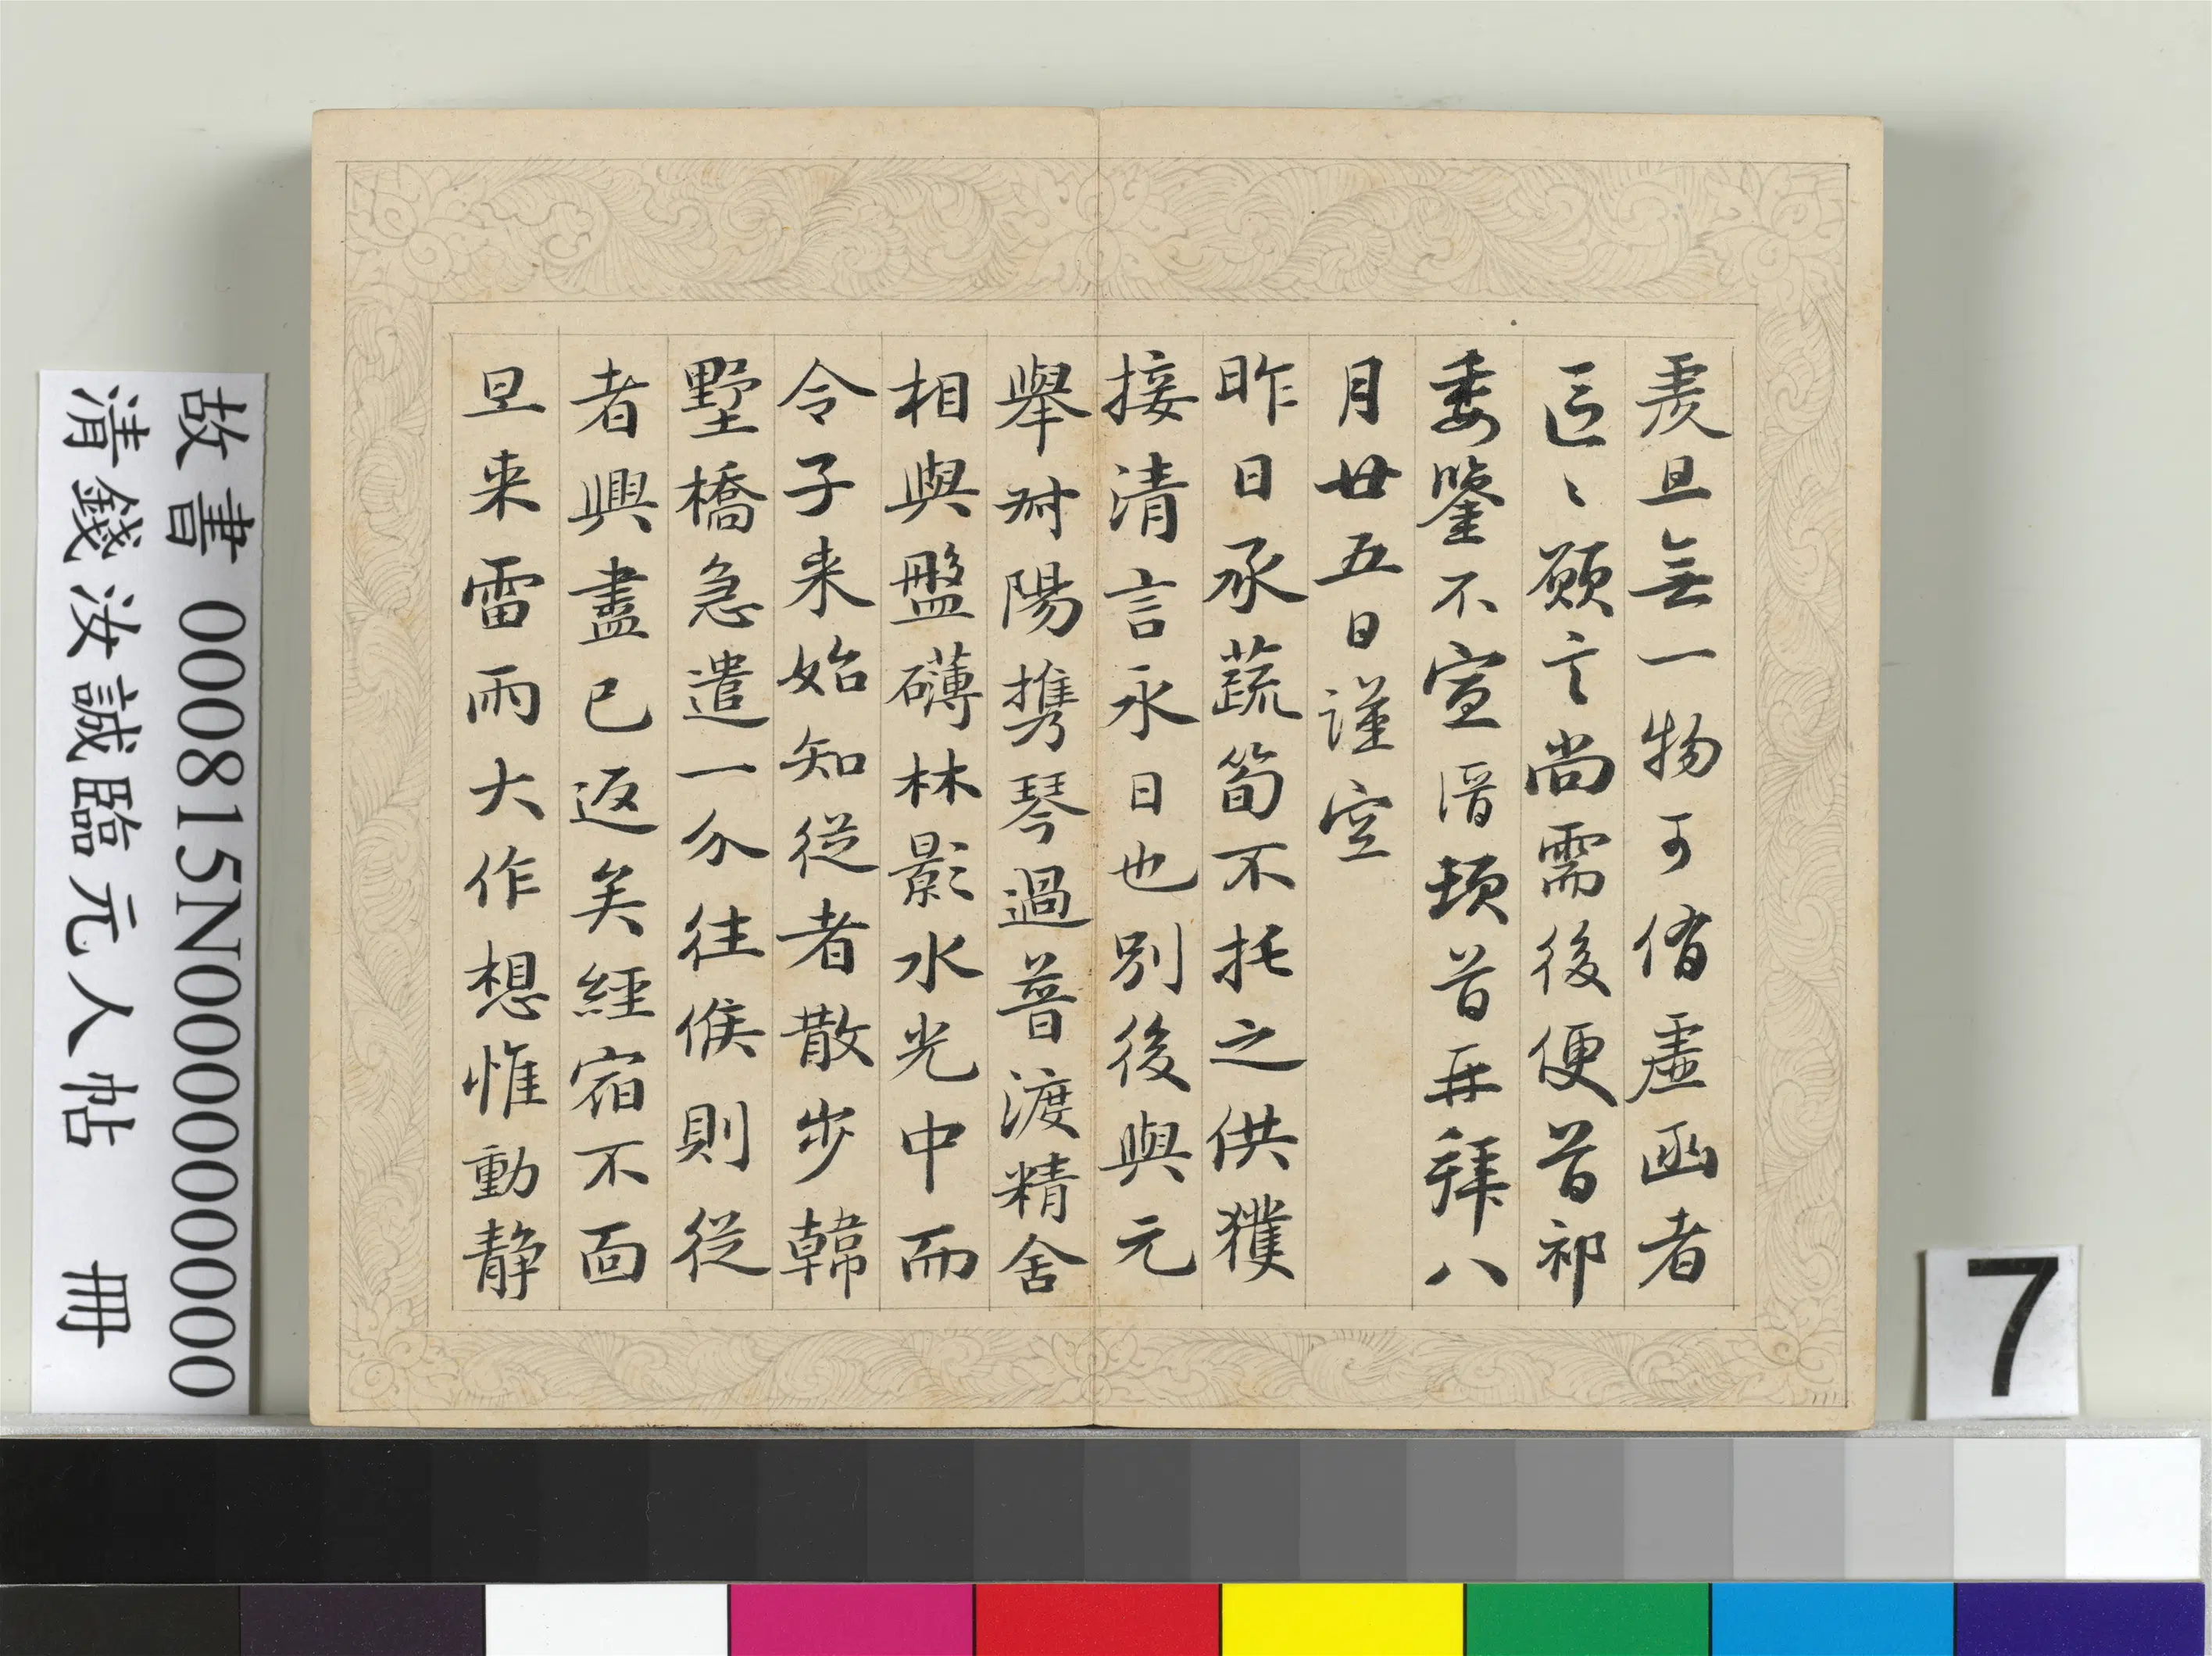 羑且無一物可侑虛函者
區〻願言尚需後便首祁
委鑒不宣溍頓首再拜八
月廿五日謹空
昨日承蔬筍不托之供獲
接清言永日也別後與元
舉對陽攜琴過普渡精舍
相與盤礴林影水光中而
令子来始知從者散步韓
墅橋急遣一介往候則從
者興盡已返矣經宿不面
旦来雷雨大作想惟動靜
故書 000815N000000000
清錢汝誠臨元人帖 冊
7